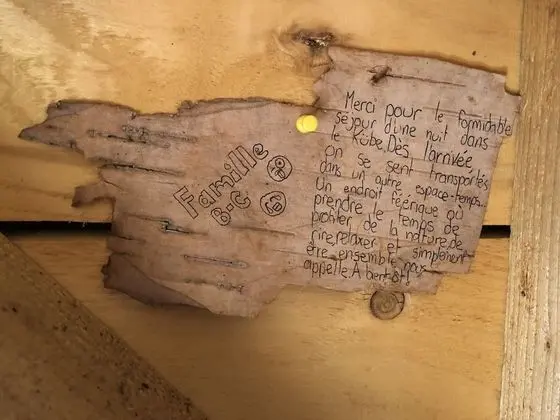 Merci pour le formidable
séjour d'une nuit dans
le Kube. Dès l'arrivée,
on se sent transportés
dans un autre espace-temps.
Un endroit féérique où
prendre le temps de
profiter de la nature, de
rire, relaxer et simplement
être ensemble nous
appelle. A bientôt!
Famille
B-C